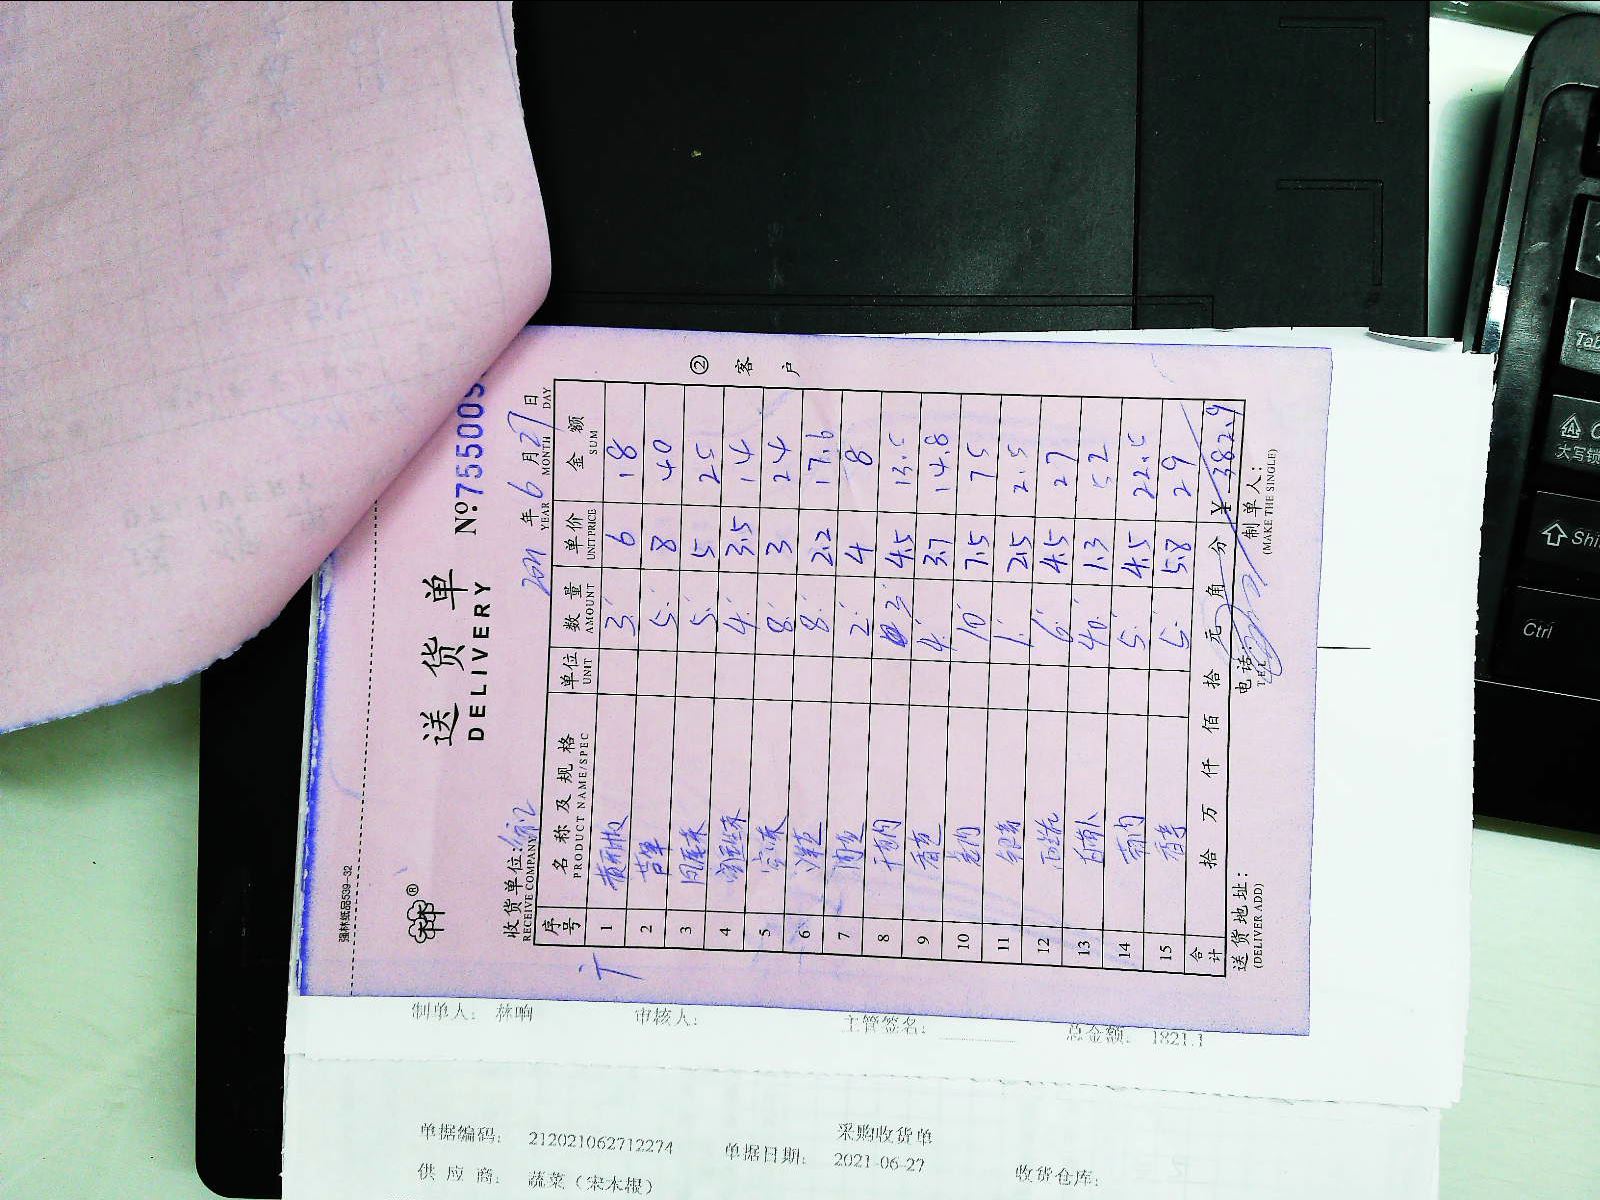 强林纸品539-32
送货单
DELIVERY
№755009
收货单位:
RECEIVE COMPANY
2021年6月27日
YEAR MONTH DAY
② 客户
序号 名称及规格 单位 数量 单价 金额
PRODUCT NAME/SPEC UNIT AMOUNT UNIT PRICE SUM
1 3 6 18
2 芦笋 5 8 40
3 5 5 25
4 4 3.5 14
5 8 3 24
6 8 2.2 17.6
7 2 4 8
8 3 4.5 13.5
9 香芭 4 3.7 14.8
10 10 7.5 75
11 1 2.5 2.5
12 西兰花 6 4.5 27
13 白萝卜 40 1.3 52
14 5 4.5 22.5
15 5 5.8 29
合计 拾 万 仟 佰 拾 元 角 分 ¥ 382.9
送货地址: 电话: 制单人:
(DELIVER ADD) TEL (MAKE THE SINGLE)
制单人: 林响 审核人: 主管签名: 总金额: 1821.1
采购收货单
单据编码: 212021062712274 单据日期: 2021-06-27 收货仓库:
供应商: 蔬菜(宋本根)
Tab
大写锁
Shi
Ctrl